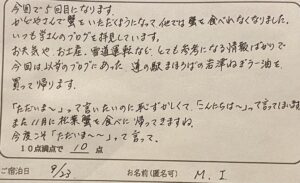 今回で5回目になります。
かどやさんで蟹をいただくようになって他では蟹を食べれなくなりました。
いつも皆さんのブログを拝見しています。
お天気や、お土産、雪道運転など、とても参考になる情報ばかりで
今回は以前のブログにあった、道の駅まほろばの岩津ねぎラー油を、
買って帰ります。
「ただいま〜」って言いたいのに恥ずかしくて、「こんにちは〜」って言ってしまい
また11月に松葉蟹を食べに帰ってきますね。
今度こそ「ただいま〜〜」って言って。
10点満点で 10 点
ご宿泊日 9/23 お名前(匿名可) M.I